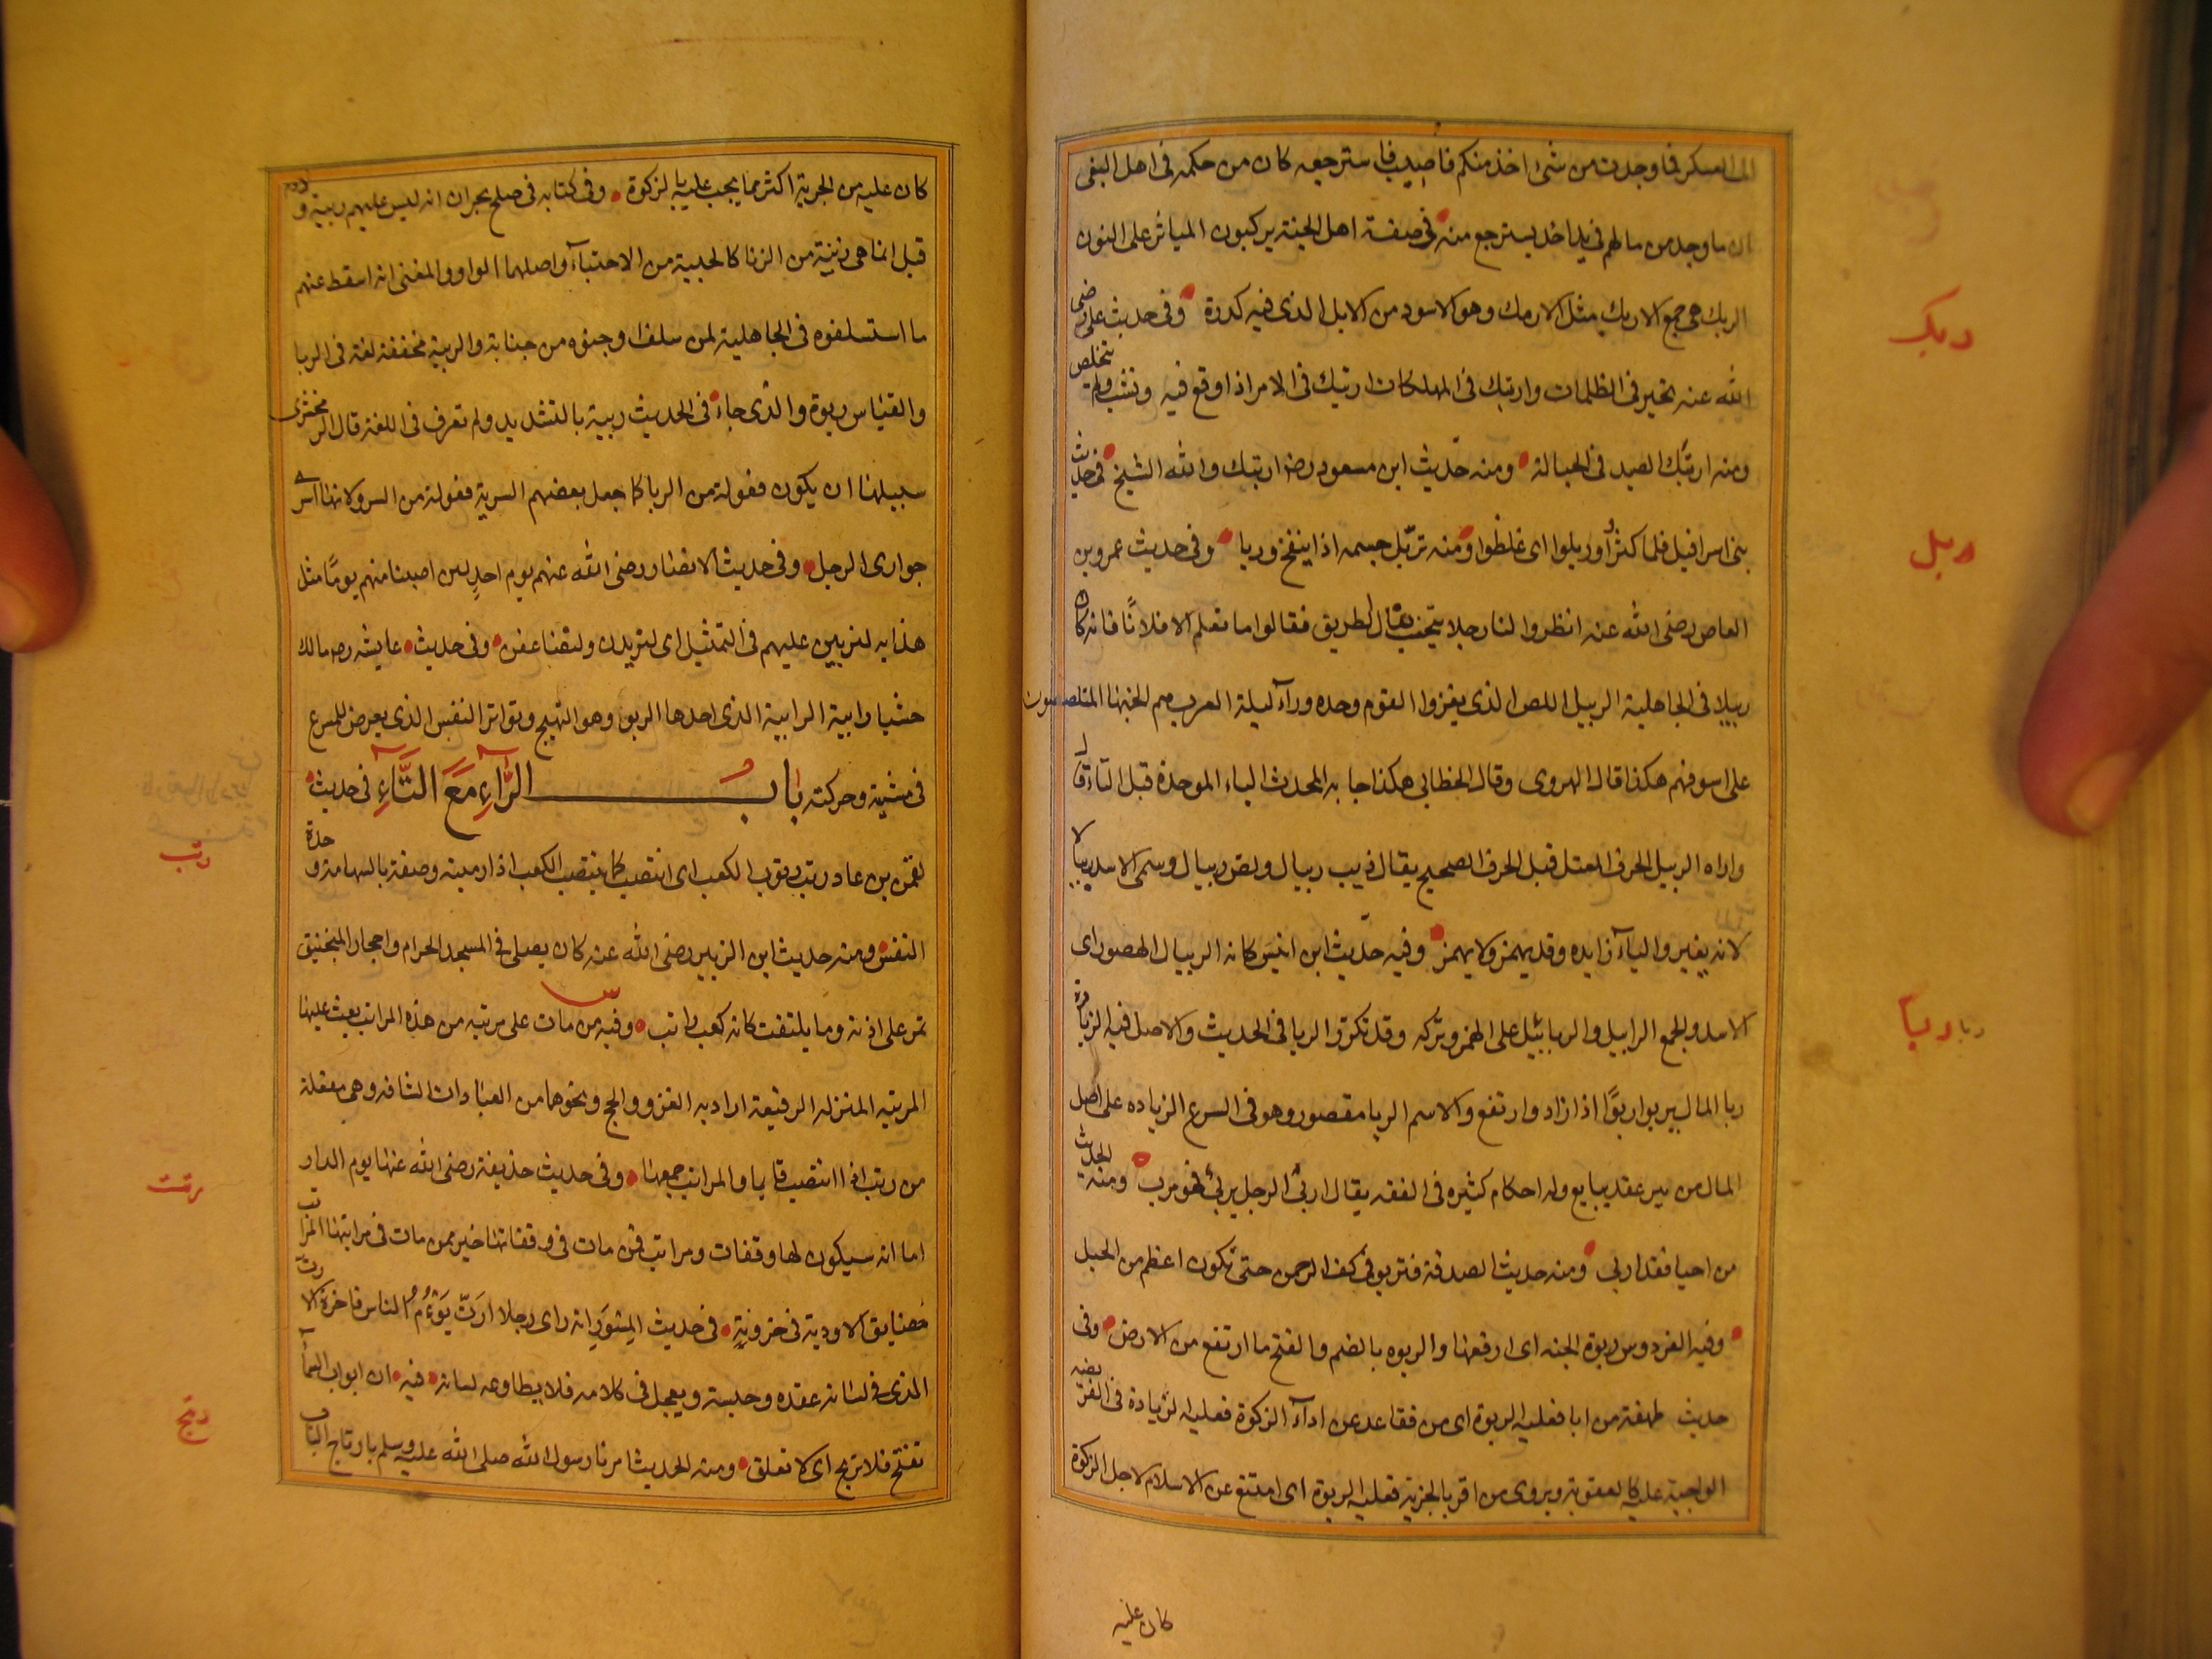 الى العسكر فما وجدت من شئ اخذ منكم فاصيب فاسترجعه كان من حكمه فى اهل البغى
ان ما وجد من مالهم فى يد احد يسترجع منه فى صفة اهل الجنة يركبون المياثر على النون
الربك هى جمع الاربك مثل الارمك وهو الاسود من الابل الذى فيه كدرة وفى حديث على رضى
الله عنه تحير فى الظلمات وارتبك فى المهلكات ارتبك فى الامر اذا وقع فيه ونشب ولم يتخلص
ومنه ارتبك الصيد فى الحبالة ومنه حديث ابن مسعود رضه ارتبك والله الشيخ فى حديث
بنى اسرافيل فلما كثروا وربلوا اى غلظوا ومنه تربّل جسمه اذا ينفخ وربا وفى حديث عمرو بن
العاص رضى الله عنه انظروا لنا رجلا يتجنب بنا الطريق فقالوا ما نعلم الا فلانًا فانه كان
ربيلا فى الجاهلية الربيل اللص الذى يغزوا القوم وحده ورآء ليلة العرب هم الخبثا المتلصصون
على اسوقهم هكذا قال الهروى وقال الخطابى هكذا جا به المحدث الباء الموحدة قبل التاء قال
واراه الريبل الحرف المعتل قبل الحرف الصحيح يقال ذيب ريبال ولص ريبال وسمى الاسد ريبالا
لانه يغير والياء زايده وقد يهمز ولا يهمز وفيه حديث ابن انيس كانه الريبال الهصور اى
الاسد والجمع الرابيل والرباييل على الهمز وتركه وقد تكرر الربا فى الحديث والاصل فيه الزيادة
ربا المال يربوا ربوًا اذا زاد وارتفع والاسم الربا مقصور وهو فى السرع الزياده على اصل
المال من غير عقد يبايع وله احكام كثيره فى الفقه يقال اربى الرجل يربى فهو مرب ومنه الحديث
من احيا فقد اربى ومنه حديث الصدقة فتربو فى كف الرحمن حتى تكون اعظم من الجبل
وفيه الفردوس ربوة الجنه اى ارفعها والربوه بالضم والفتح ما ارتفع من الارض وفى
حديث طهفة من ابا فعليه الربوة اى من تقاعد عن ادآء الزكوة فعليه الزيادة فى الفريضه
الواجبة عليه كالعقوبة ويروى من اقر بالجزية فعليه الربوة اى امتنع عن الاسلام لاجل الزكوة
كان عليه
ربك
ربل
ربا ربا
كان عليه من الجزية اكثر مما يجب عليه بالزكوة وفى كتابه فى صلح نجران انه ليس عليهم ربية ولا دم
قيل انما هى ربية من الربا كالحبية من الاحتباء واصلهما الواو والمعنى انه اسقط عنهم
ما استسلفوه فى الجاهلية لمن سلف او جنوه من جناية والربية مخففة لغة فى الربا
والقياس ربوة والذى جاء فى الحديث ربية بالتشديد ولم تعرف فى اللغة قال الزمخشرى
سبيلها ان يكون فعولة من الربا كما جعل بعضهم السرية فعولة من السرو لانها اسرى
جوارى الرجل وفى حديث الانصار رضى الله عنهم يوم احد لين اصبنا منهم يومًا مثل
هذا به لنربين عليهم فى التمثيل اى لنزيدن ولنضاعفن وفى حديث عايشه رضه مالك
حشيا رابية الرابية الذى اخذها الربو وهو النهيج وتواتر النفس الذى يعرض للمسرع
فى مشية وحركته باب الرَّاءِ مَعَ التَّاءِ فى حديث
لقمن بن عاد رتب رتوب الكعب اى انتصب كما ينتصب الكعب اذا رميته وصفة بالشهامة وحدة
النفس ومنه حديث ابن الزبير رضى الله عنه كان يصلى فى المسجد الحرام واحجار المنجنيق
تمر على اذنه وما يلتفت كانه كعب راتب وفيه من مات على مرتبه من هذه المراتب بعث عليها
المرتبه المنزله الرفيعة اراد به الغزو والحج ونحوهما من العبادات الشاقه وهى مفعلة
من رتب اذا انتصب قايما والمراتب جمعها وفى حديث حذيفة رضى الله عنها يوم الدار
اما انه سيكون لها وقفات ومراتب فمن مات فى وقفاتها خير ممن مات فى مراتبها المراتب
مضايق الاودية فى حزونةٍ فى حديث المسور انه راى رجلا ارَتّ يَؤُمُّ الناس فاخره الارت
الذى فى لسانه عقده وحبسة ويعجل فى كلامه فلا يطاوعه لسانه فيه ان ابواب السمآء
تفتح فلا ترتج اى لا تغلق ومنه الحديث امرنا رسول الله صلى الله عليه وسلم بارتاج الباب
رتب
رتت
رتج